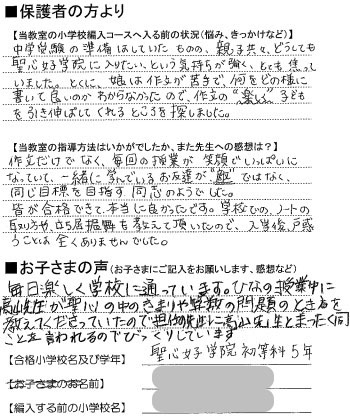 ■保護者の方より
【当教室の小学校編入コースへ入る前の状況(悩み、きっかけなど)】
中学受験の準備はしていたものの、親子共々、どうしても
聖心女子学院に入りたい、という気持ちが強く、とても焦って
いました。とくに、娘は作文が苦手で、何をどの様に
書いて良いのかわからなかったので、作文の"楽しく"子ども
を引き伸ばしてくれるところを探しました。
【当教室の指導方法はいかがでしたか、また先生への感想は?】
作文だけでなく、毎回の授業が笑顔でいっぱいに
なっていて、一緒に学んでいるお友達が"敵"ではなく、
同じ目標を目指す同志のようでした。
皆が合格できて、本当に良かったです。学校での、ノートの
取り方や、立ち居振舞も教えて頂いたので、入学後、戸惑
うことは全くありませんでした。
■お子さまの声(お子さまにご記入をお願いします、感想など)
毎日楽しく学校に通っています。ひなの授業中に
高山先生が聖心の中のきまりや算数の問題のときかたを
教えてくださっていたので担任の先生に高山先生とまったく同じ
ことを言われるのでびっくりしています
【合格小学校名及び学年】 聖心女子学院初等科5年
【お子さまのお名前】
【編入する前の小学校名】